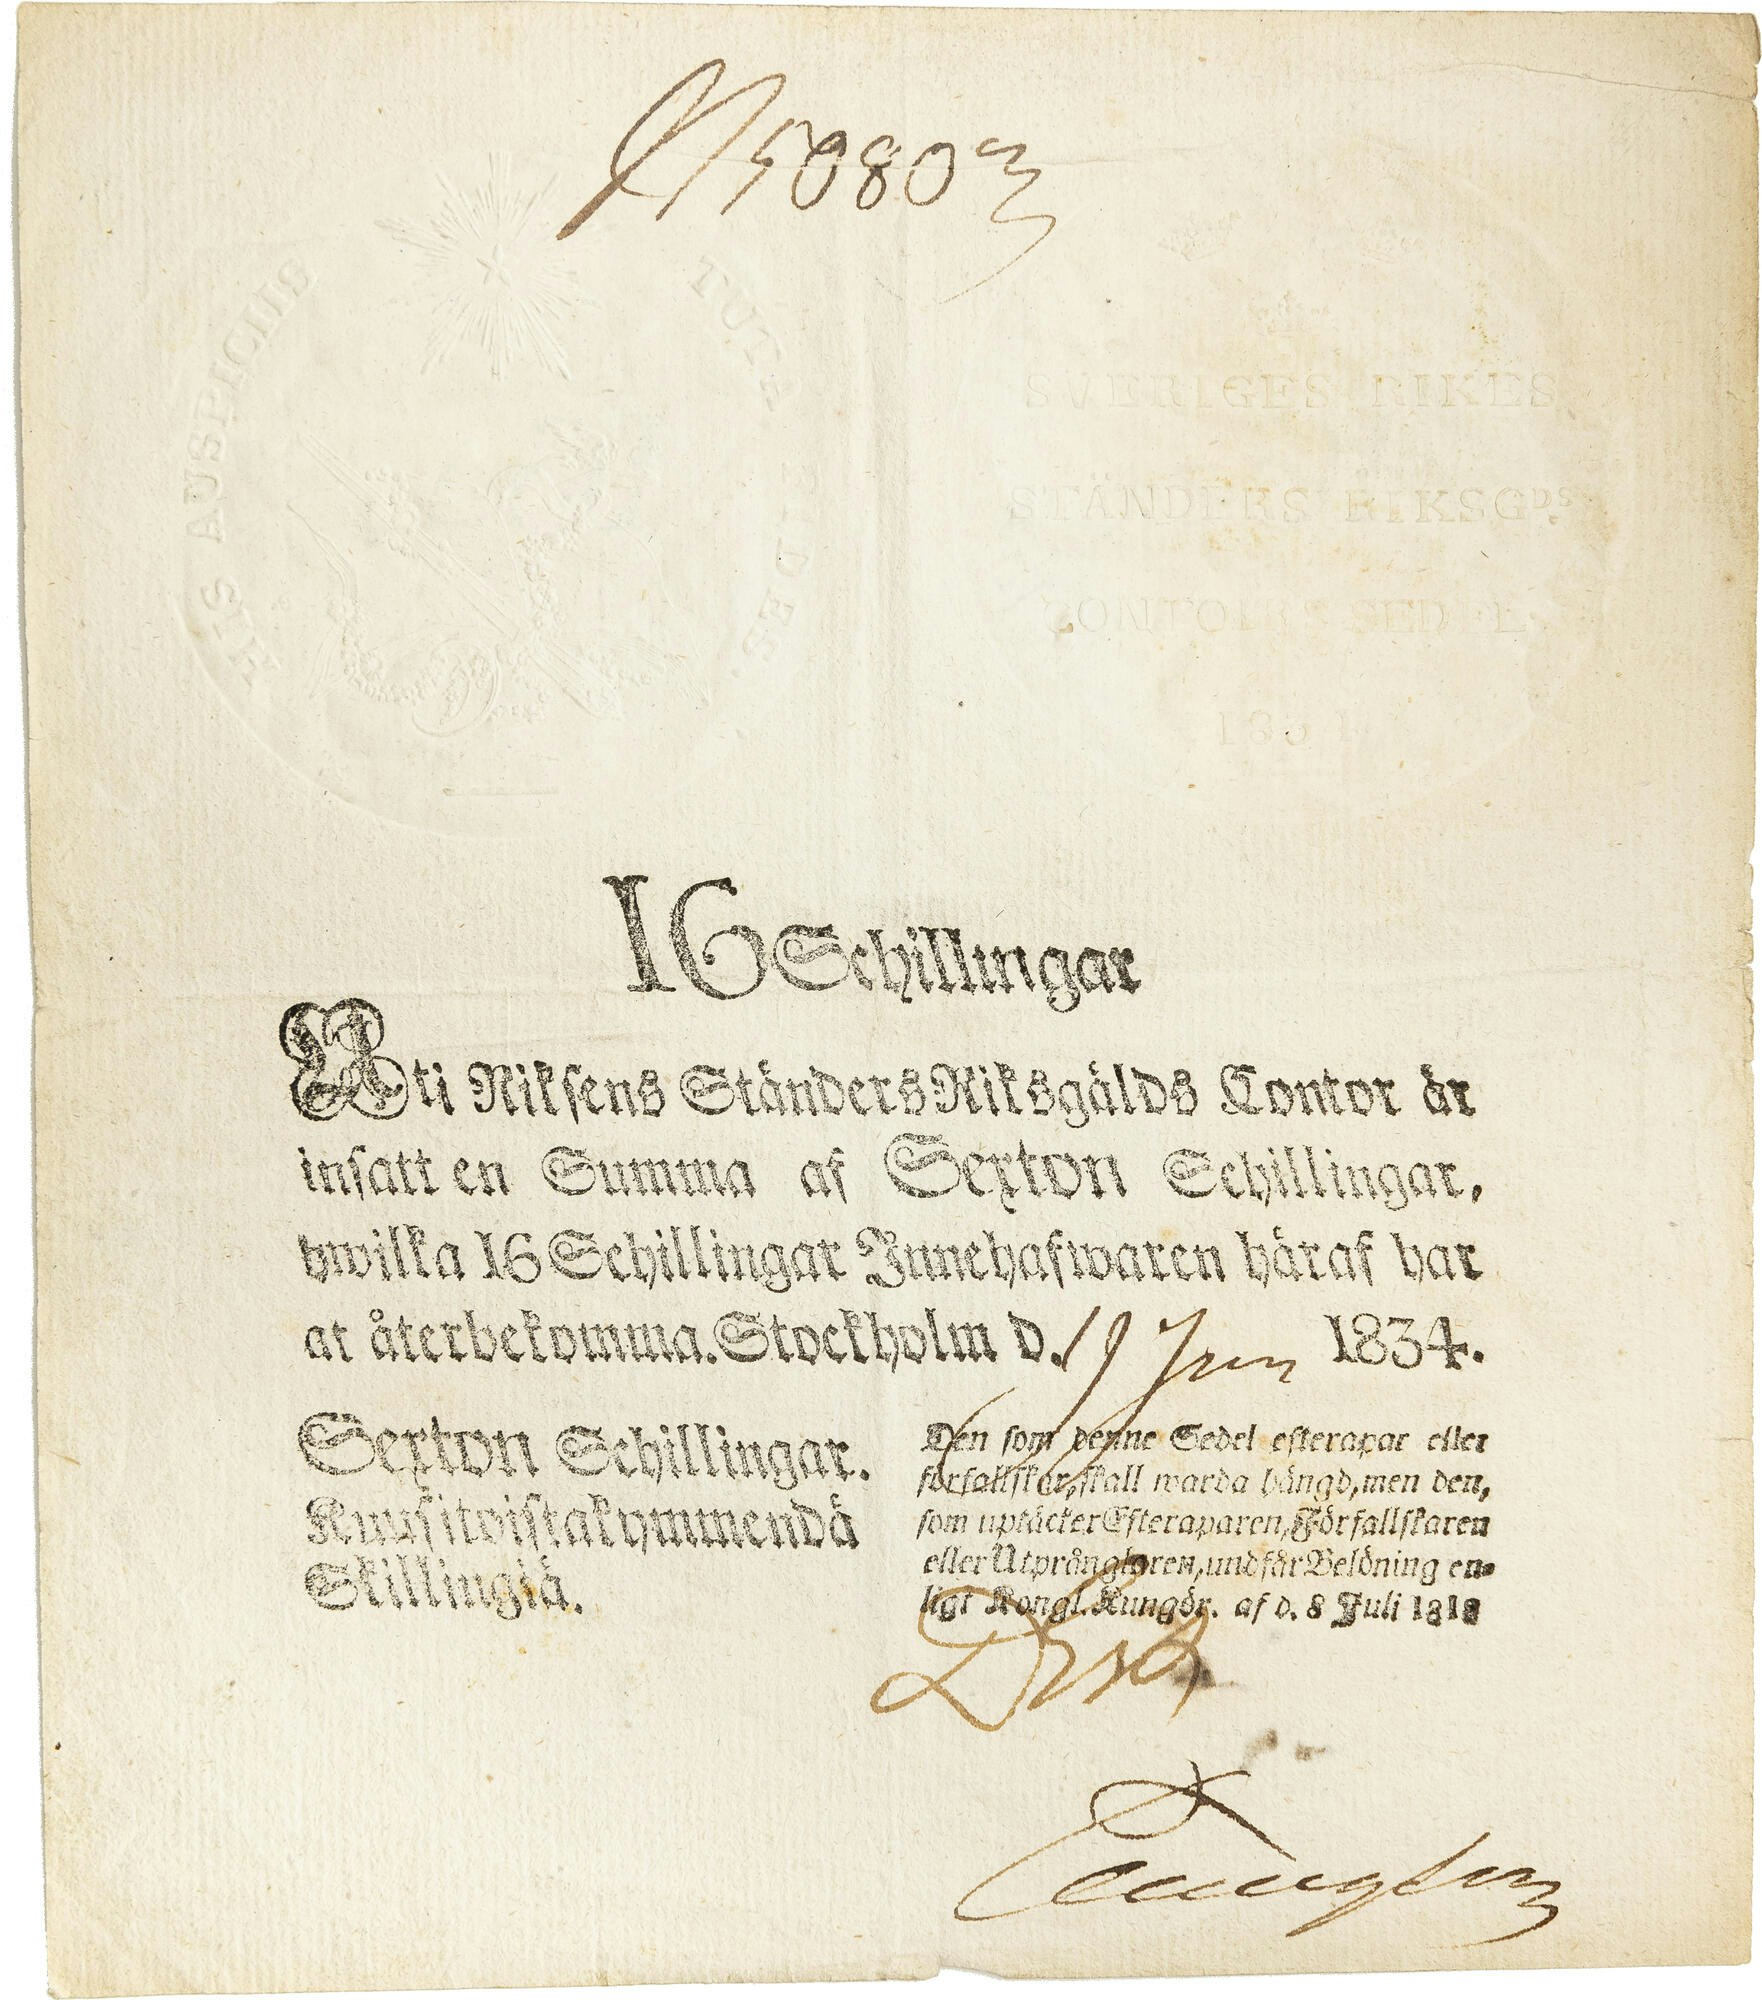 HIS AUSPICIIS
SVERIGES RIKES
STÄNDERS RIKSGDS
CONTOIRS SEDEL
1834
16 Schillingar
Uti Riksens Ständers Riksgälds Contor är
insatt en Summa af Sexton Schillingar,
hwilka 16 Schillingar Innehafwaren häraf har
at återbekomma. Stockholm d. 19 Juni 1834.
Sexton Schillingar.
Kuusitoistakymmendä
Skillingiä.
Den som denne Sedel efterapar eller
förfallskar, skall warda hängd, men den,
som uptäcker Efteraparen, Förfallskaren
eller Utprånglaren, undfår Belöning en-
ligt Kongl. Kungör. af d. 8 Juli 1818